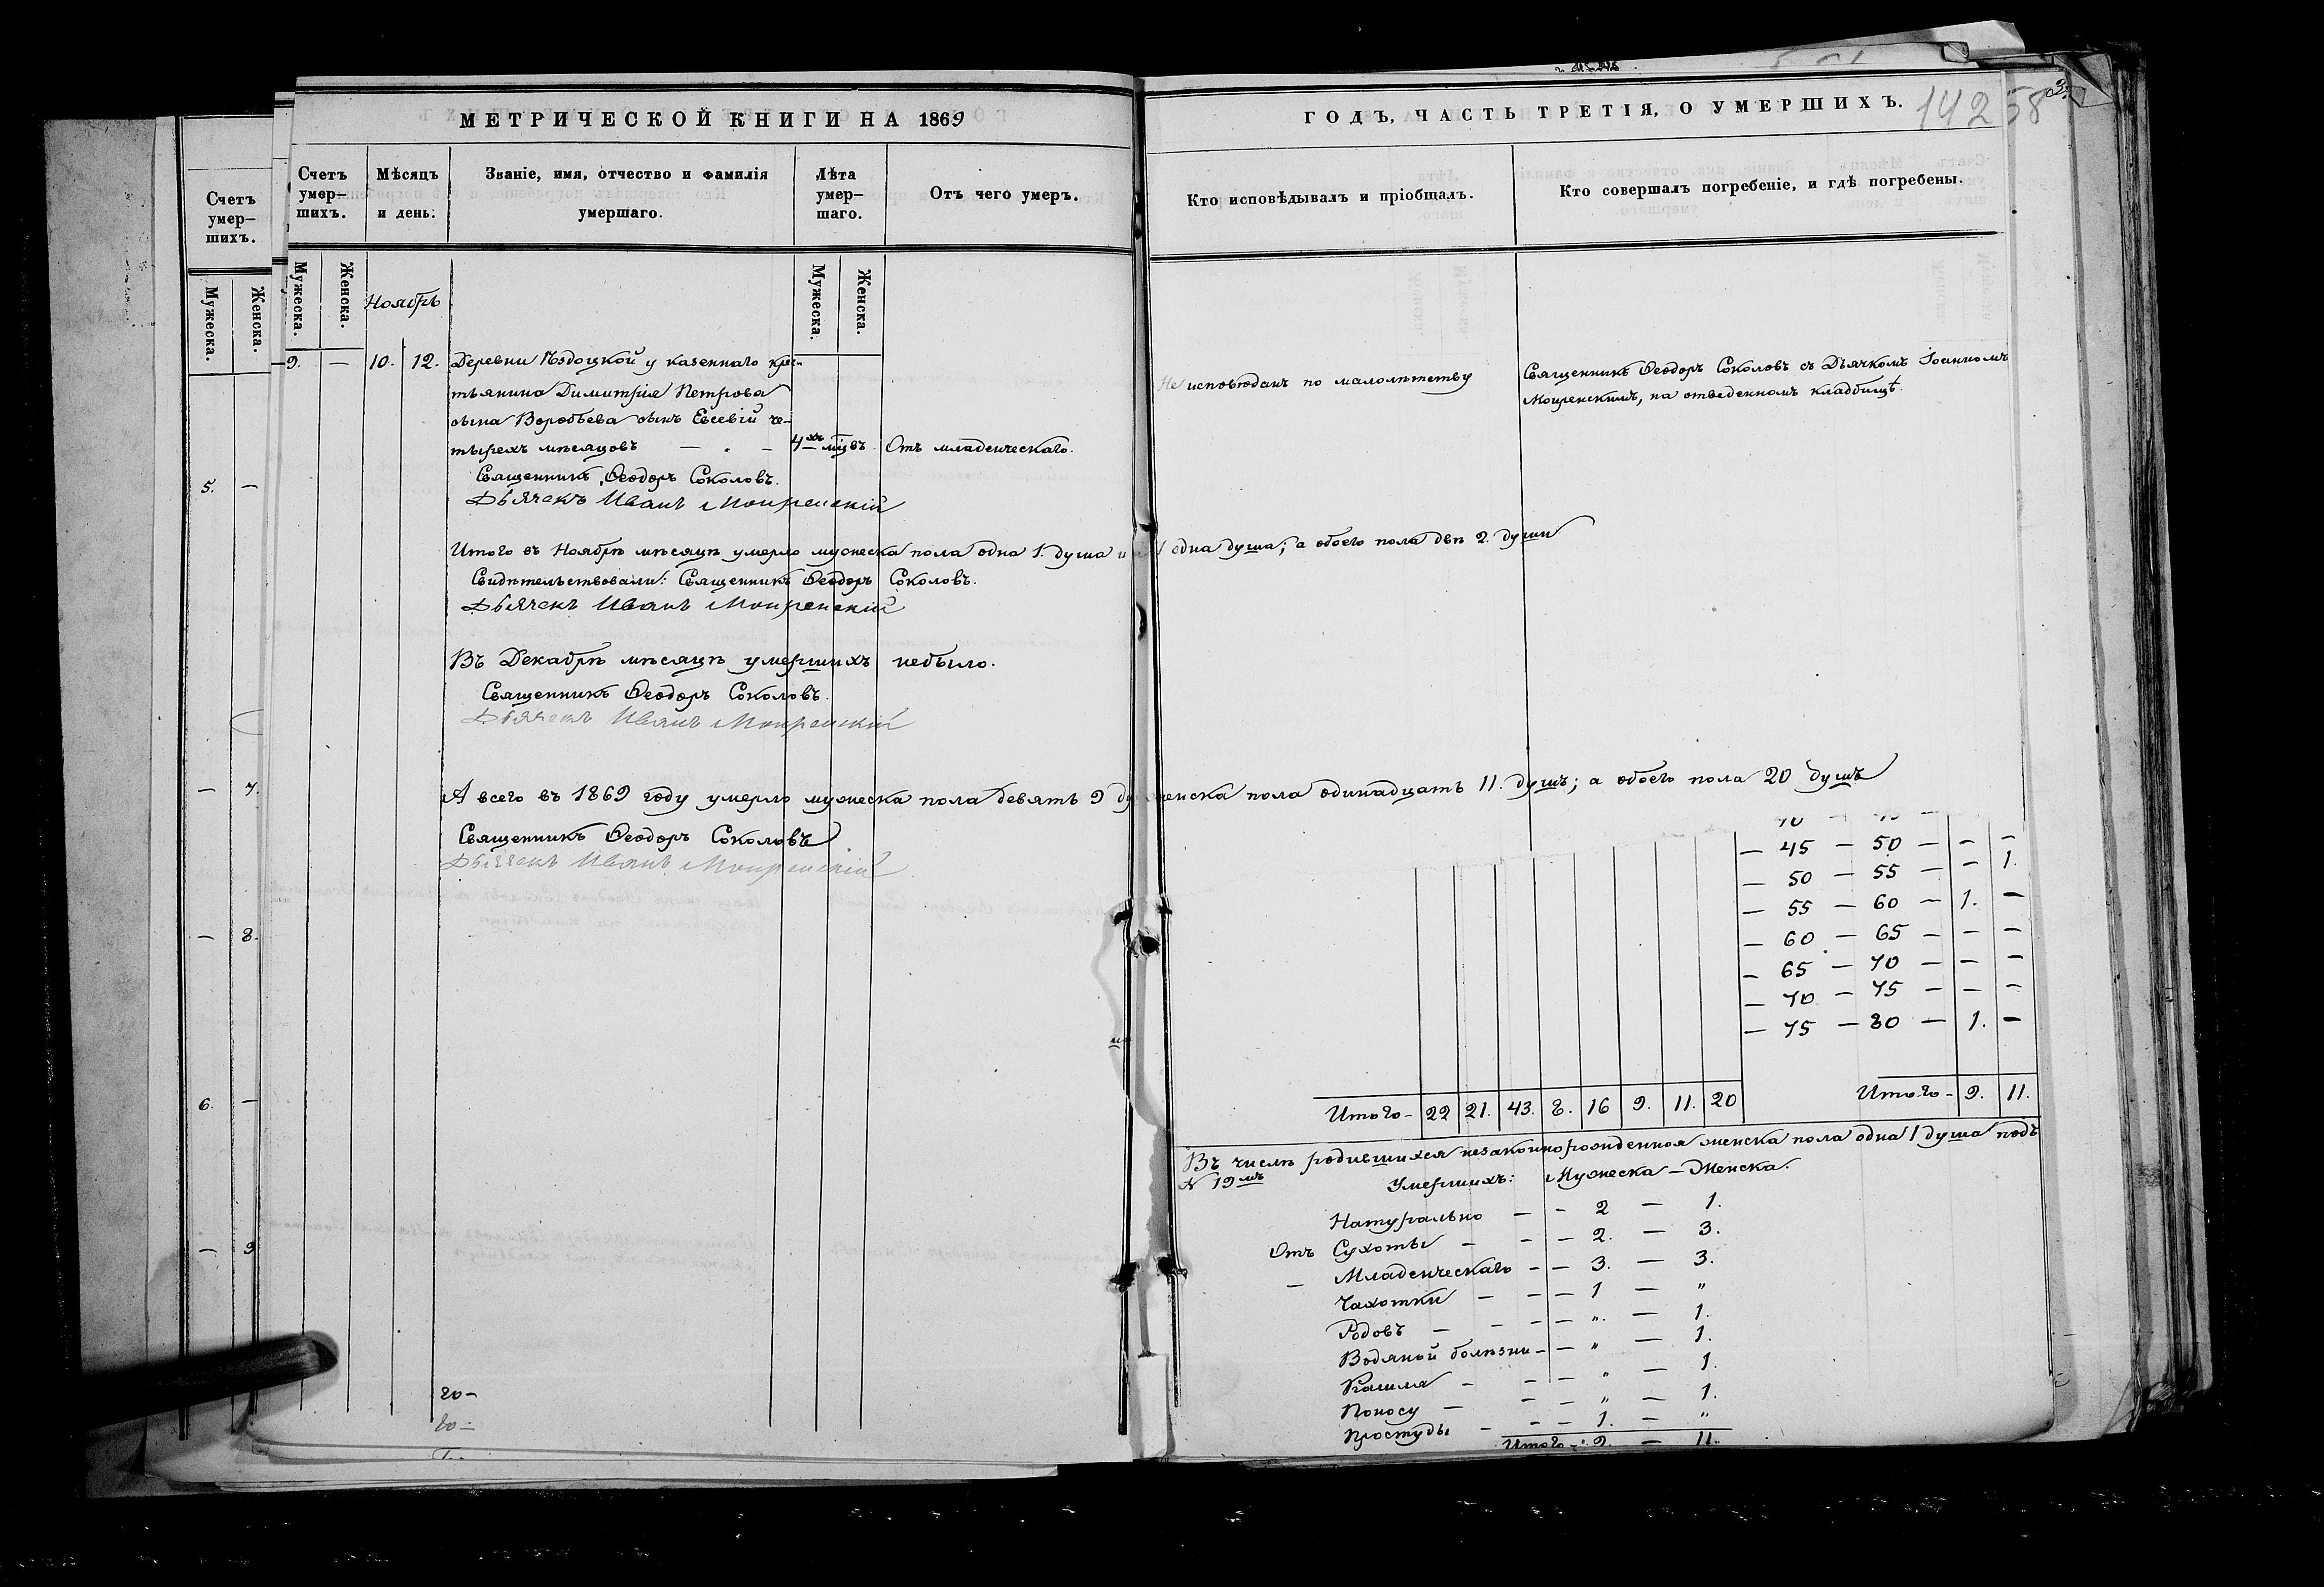 МЕТРИЧЕСКОЙ КНИГИ НА 1869
ГОДЪ, ЧАСТЬ ТРЕТІЯ, О УМЕРШИХЪ.
142
58
Счетъ умер-
шихъ.
Мужеска.
Женска.
5. —
— 7.
— 8.
6. —
— 9
Счетъ
умер-
шихъ.
Мѣсяцъ
и день.
Званіе, имя, отчество и фамилія
умершаго.
Лѣта
умер-
шаго.
Отъ чего умеръ.
Кто исповѣдывалъ и пріобщалъ.
Кто совершалъ погребеніе, и гдѣ погребены.
Мужеска.
Женска.
Ноябрь
Мужеска.
Женска.
9. — 10. 12. Деревни у казеннаго крес-
тьянина Димитрія Петрова
сына Воробьева сынъ Евсевій че-
тырехъ мѣсяцовъ — . — 4хъ мцвъ Отъ младенческаго.
Не исповѣданъ по малолѣтству
Священникъ Ѳеодоръ Соколовъ съ Дьячкомъ Іоанномъ
на отведенномъ кладбищѣ.
Священникъ Ѳеодоръ Соколовъ.
Дьячекъ Иванъ
Итого въ Ноябрѣ мѣсяцѣ умерло мужеска пола одна 1. душа и 1 одна душа; а обоего пола двѣ 2. души
Свидѣтельствовали: Священникъ Ѳеодоръ Соколовъ.
Дьячекъ Иванъ
Въ Декабрѣ мѣсяцѣ умершихъ небыло.
Священникъ Ѳеодоръ Соколовъ.
Дьячекъ Иванъ
А всего въ 1869 году умерло мужеска пола девять 9 ду женска пола одинадцать 11. душъ; а обоего пола 20 душъ
Священникъ Ѳеодоръ Соколовъ
Дьячекъ Иванъ
— 45 — 50 — — —
— 50 — 55 — — 1.
— 55 — 60 — 1. —
— 60 — 65 — — —
— 65 — 70 — — —
— 70 — 75 — — —
— 75 — 80 — 1. —
Итого - 22 21. 43. 8. 16 9. 11. 20
Итого - 9. 11.
Въ числѣ родившихся незаконнорожденная женска пола одна 1 душа подъ
N 19мъ
Умершихъ: Мужеска — Женска.
Натурально — - 2 — 1.
Отъ Сухоты — - — 2. — 3.
— Младенческаго - — 3. — 3.
Чахотки — - — 1 — "
Родовъ — - - — " — 1.
Водяной болѣзни - — " — 1.
Кашля — - — " — 1.
Поносу — - — " — 1.
Простуды — - — 1. — "
Итого - 9. — 11.
20 -
20 -